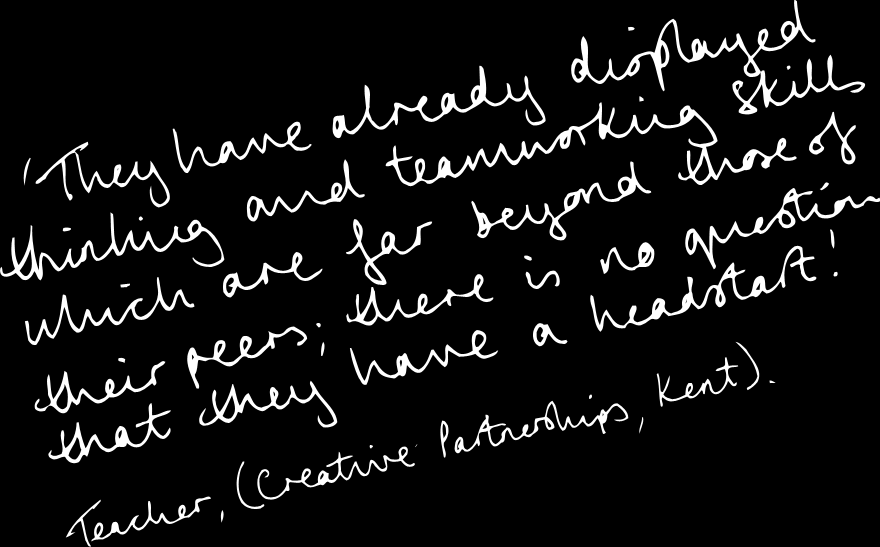 'They have already displayed
thinking and teamworking skills
which are far beyond those of
their peers; there is no question
that they have a headstart!
Teacher, (Creative Partnerships, Kent).